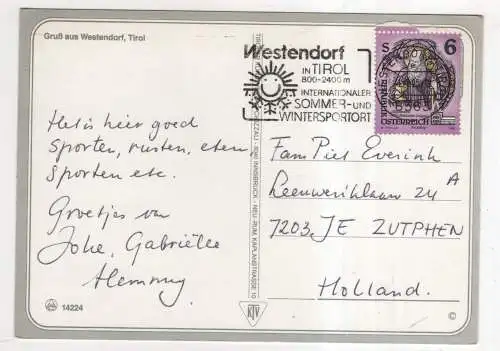 Gruß aus Westendorf, Tirol
Het is hier goed
sporten, rusten, eten,
sporten etc.
Groetjes van
Joke, Gabriëlle
Hemmy
14224
Westendorf
IN TIROL
800-2400 m
INTERNATIONALER
SOMMER- UND
WINTERSPORTORT
S 6
REPUBLIK
ÖSTERREICH
6363
INNSBRUCK - NEU-RUM, KAPLANSTRASSE 10
KTV
Fam Piet Everink
Leeuweriklaan 24 A
7203 JE ZUTPHEN
Holland.
©